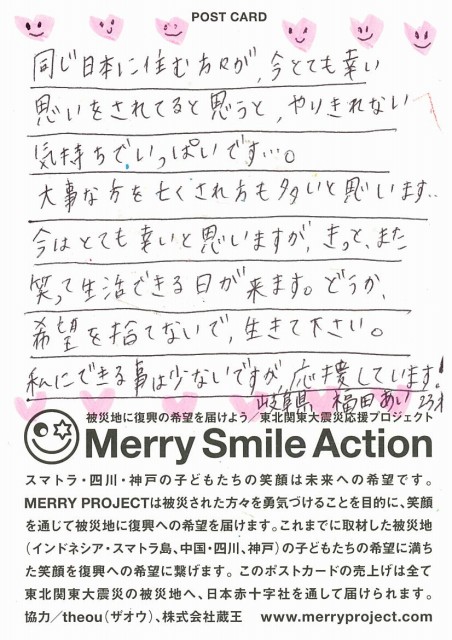 POST CARD
同じ日本に住む方々が、今とても幸い
思いをされてると思うと、やりきれない
気持ちで、いっぱいです…。
大事な方を亡くされ方も多いと思います..
今はとても幸いと思いますが、きっと、また
笑って生活できる日が来ます。どうか、
希望を捨てないで、生きて下さい。
私にできる事は少ないですが、応援しています!
岐阜県 福田あい 23才
被災地に復興の希望を届けよう／東北関東大震災応援プロジェクト
Merry Smile Action
スマトラ・四川・神戸の子どもたちの笑顔は未来への希望です。
MERRY PROJECTは被災された方々を勇気づけることを目的に、笑顔
を通じて被災地に復興への希望を届けます。これまでに取材した被災地
(インドネシア・スマトラ島、中国・四川、神戸)の子どもたちの希望に満ち
た笑顔を復興への希望に繋げます。このポストカードの売上げは全て
東北関東大震災の被災地へ、日本赤十字社を通して届けられます。
協力／theou(ザオウ)、株式会社蔵王 www.merryproject.com